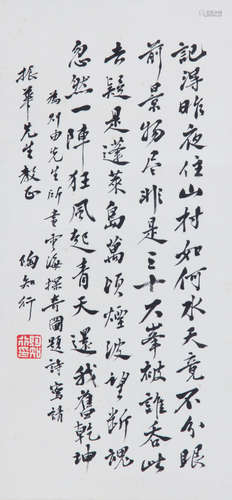 記得昨夜住山村如何水天竟不分眼
前景物尽非是三十六峯被誰吞此
去疑是蓬萊島萬頃煙波望斷魂
忽然一陣狂風起青天還我舊乾坤
為別由先生所畫雲海探奇圖題詩寫請
振華先生教正
陶知行